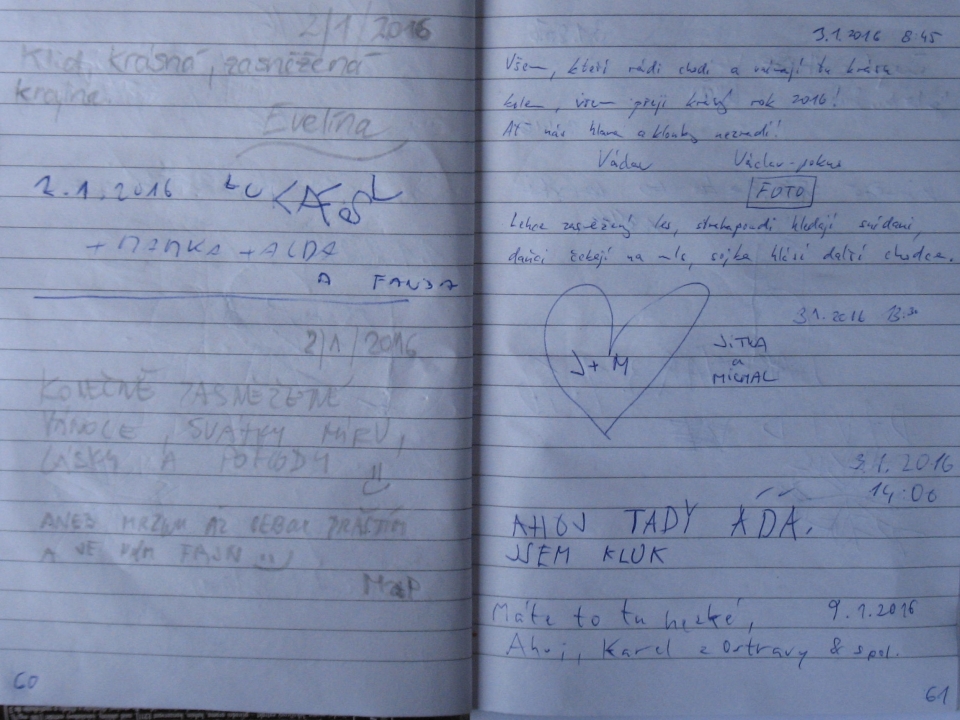 2/1/2016
Klid, krásná, zasněžená
krajina
Evelína
2.1.2016
+ MAMKA + ALDA
A FANDA
2/1/2016
KONEČNĚ ZASNĚŽENÉ
VÁNOCE, SVÁTKY MÍRU,
LÁSKY A POHODY
ANEB MRZNEM AŽ
A JE NÁM FAJN
M&P
60
3.1.2016 8:45
Všem, kteří rádi chodí a vnímají tu krásu
kolem, všem přeji krásný rok 2016!
Ať nás hlava a klouby nezradí!
Václav Václav-pokus
FOTO
Lehce zasněžený les, strakapoudi hledají snídani,
daňci čekají na , sojka hlásí další chodce.
3.1.2016 13:30
J+M
JITKA
a
MICHAL
3.1.2016
14:06
AHOJ TADY ÁĎA.
JSEM KLUK
Máte to tu hezké, 9.1.2016
Ahoj, Karel z Ostravy & spol.
61